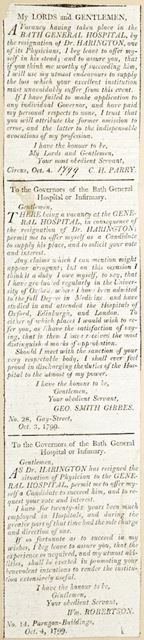 My LORDS and GENTLEMEN,
A Vacancy having taken place in the
BATH GENERAL HOSPITAL, by
the resignation of Dr. HARINGTON, one
of its Physicians, I beg leave to offer my-
self in his stead; and to assure you, that
if you think me worthy of succeeding him,
I will use my utmost endeavours to supply
the loss which your excellent institution
must unavoidably suffer from this event.
If I have failed to make application to
any individual Governor, and have paid
my personal respects to none, I trust that
you will attribute the former omission to
error, and the latter to the indispensable
avocations of my profession.
I have the honour to be,
My Lords and Gentlemen,
Your most obedient Servant,
Circus, Oct. 4. 1799 C. H. PARRY.
To the Governors of the Bath General
Hospital or Infirmary.
Gentlemen,
THERE being a vacancy at the GENE-
RAL HOSPITAL, in consequence of
the resignation of Dr. HARINGTON;
permit me to offer myself as a Candidate
to supply his place, and to solicit your vote
and interest.
Any claims which I can mention might
appear arrogant; but on this occasion I
think it a duty I owe myself, to say, that
I have graduated regularly in the Univer-
sity of Oxford where I have been admitted
to the full Degree in Medicine and have
studied in and attended the Hospitals of
Oxford, Edinburgh, and London. To
either of which places I would wish to re-
fer you, as I have the satisfaction of say-
ing, that in them I have received the most
distinguished marks of approbation.
Should I meet with the sanction of your
very respectable body, I shall ever feel
proud in discharging the duties of the Hos-
pital to the utmost of my power.
I have the honour to be,
Gentlemen,
Your obedient Servant,
GEO. SMITH GIBBES.
No. 28, Gay-Street,
Oct. 3, 1799.
To the Governors of the Bath General
Hospital or Infirmary.
Gentlemen,
AS Dr. HARINGTON has resigned the
situation of Physician to the GENE-
RAL HOSPITAL, permit me to offer my-
self a Candidate to succeed him, and to re-
quest your vote and interest.
I have for twenty-six years been much
employed in Hospitals, and during the
greater part of that time had the sole charge
and direction of one.
If so fortunate as to succeed in my
wishes, I beg leave to assure you, that the
experience so acquired, and my utmost abi-
lities, shall be exerted in promoting your
benevolent exertions to render the institu-
tion extensively useful.
I have the honour to be,
Gentlemen,
Your obedient Servant,
Wm. ROBERTSON.
No. 14. Paragon-Buildings,
Oct. 4, 1799.